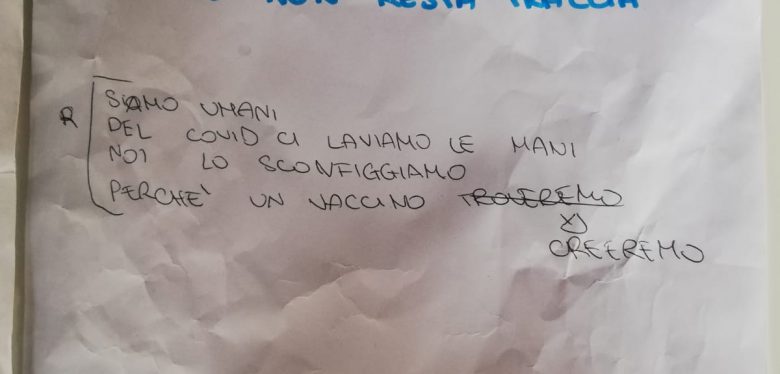 NON RESTA TRACCIA
R
SIAMO UMANI
DEL COVID CI LAVIAMO LE MANI
NOI LO SCONFIGGIAMO
PERCHE' UN VACCINO TROVEREMO
CREEREMO